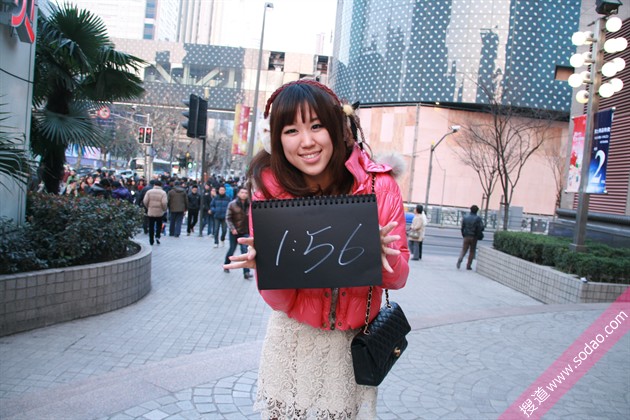 1:56
搜道 www.sodao.com